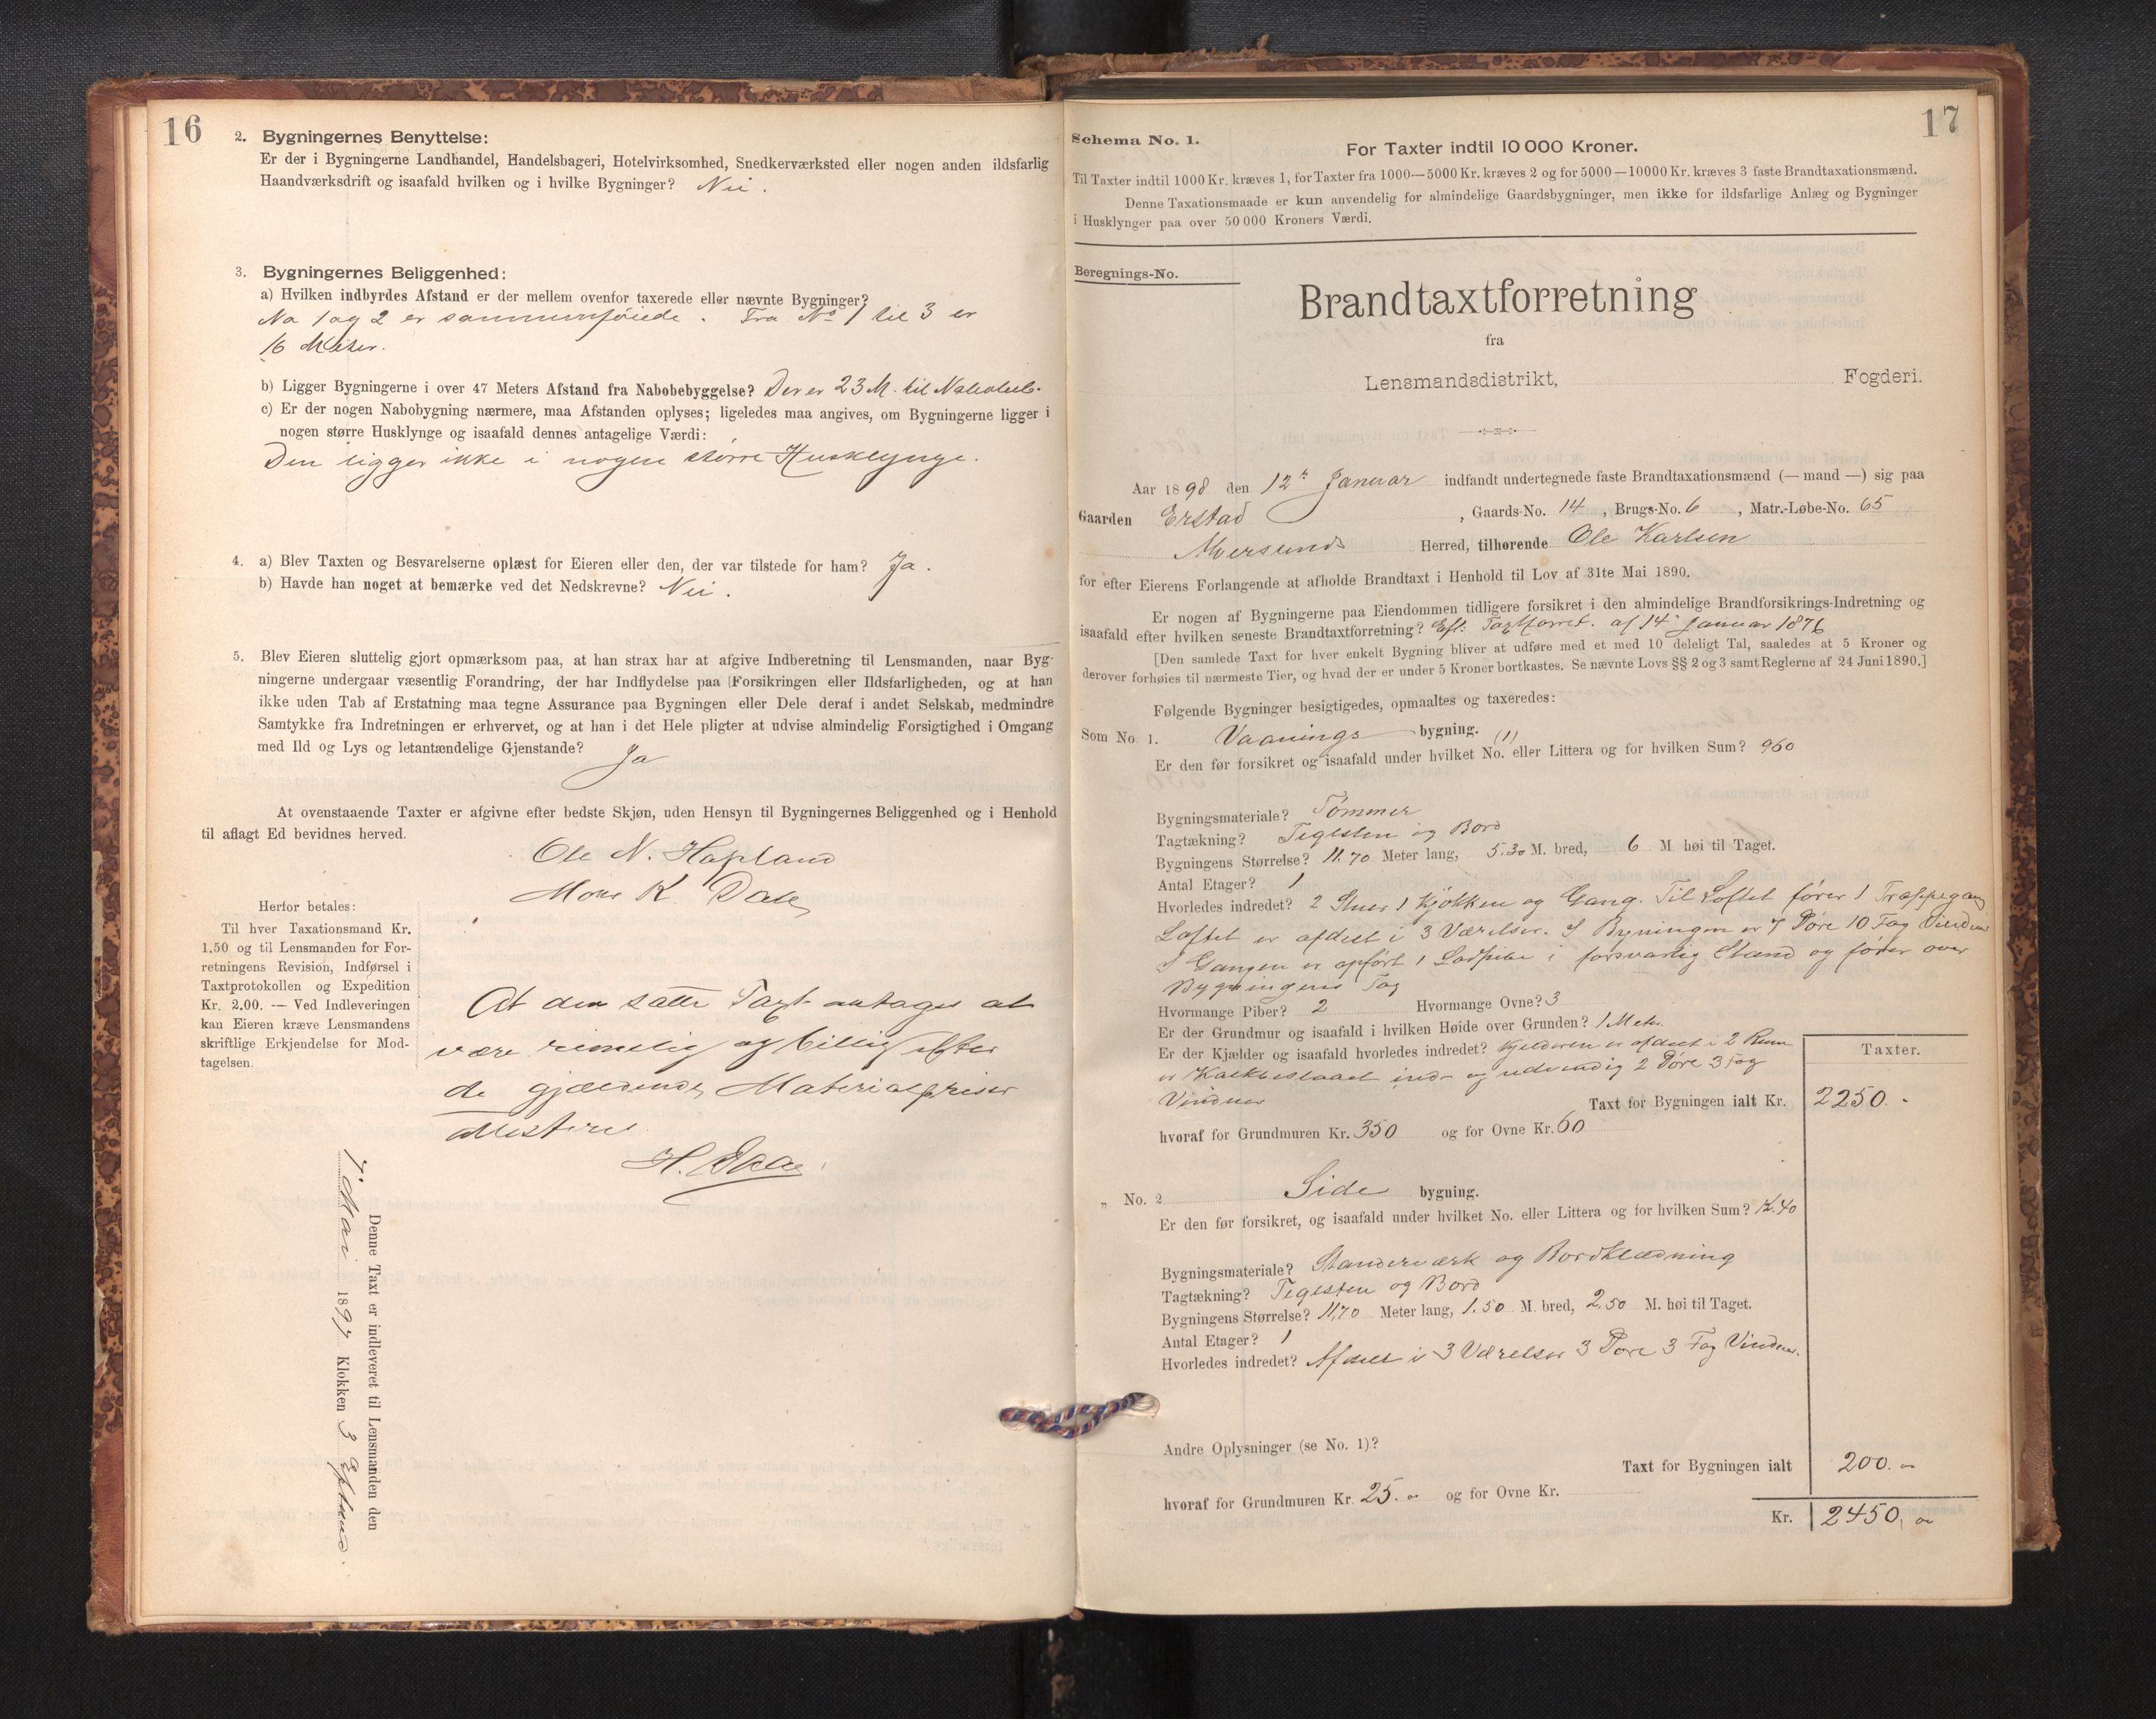 16
2. Bygningernes Benyttelse:
Er der i Bygningerne Landhandel, Handelsbageri, Hotelvirksomhed, Snedkerværksted eller nogen anden ildsfarlig
Haandværksdrift og isaafald hvilken og i hvilke Bygninger? Nei.
3. Bygningernes Beliggenhed:
a) Hvilken indbyrdes Afstand er der mellem ovenfor taxerede eller nævnte Bygninger?
No 1 og 2 er sammenføiede. Fra No 1 til 3 er
16 Meter.
b) Ligger Bygningerne i over 47 Meters Afstand fra Nabobebyggelse? Der er 23 M. til
c) Er der nogen Nabobygning nærmere, maa Afstanden oplyses; ligeledes maa angives, om Bygningerne ligger i
nogen større Husklynge og isaafald dennes antagelige Værdi:
Den ligger ikke i nogen større Husklynge.
4. a) Blev Taxten og Besvarelserne oplæst for Eieren eller den, der var tilstede for ham? Ja.
b) Havde han noget at bemærke ved det Nedskrevne? Nei.
5. Blev Eieren sluttelig gjort opmærksom paa, at han strax har at afgive Indberetning til Lensmanden, naar Byg-
ningerne undergaar væsentlig Forandring, der har Indflydelse paa Forsikringen eller Ildsfarligheden, og at han
ikke uden Tab af Erstatning maa tegne Assurance paa Bygningen eller Dele deraf i andet Selskab, medmindre
Samtykke fra Indretningen er erhvervet, og at han i det Hele pligter at udvise almindelig Forsigtighed i Omgang
med Ild og Lys og letantændelige Gjenstande? Ja
At ovenstaaende Taxter er afgivne efter bedste Skjøn, uden Hensyn til Bygningernes Beliggenhed og i Henhold
til aflagt Ed bevidnes herved.
Ole N. Hopland
Mons K. Dale
Herfor betales:
Til hver Taxationsmand Kr.
1,50 og til Lensmanden for For-
retningens Revision, Indførsel i
Taxtprotokollen og Expedition
Kr. 2.00. — Ved Indleveringen
kan Eieren kræve Lensmandens
skriftlige Erkjendelse for Mod-
tagelsen.
At den satte Taxt antages at
være rimelig og billig efter
de gjældende Materialpriser
attesteres
Denne Taxt er indleveret til Lensmanden den
7 Mai 1897 Klokken 3
17
Schema No. 1.
For Taxter indtil 10 000 Kroner.
Til Taxter indtil 1000 Kr. kræves 1, for Taxter fra 1000—5000 Kr. kræves 2 og for 5000—10000 Kr. kræves 3 faste Brandtaxationsmænd.
Denne Taxationsmaade er kun anvendelig for almindelige Gaardsbygninger, men ikke for ildsfarlige Anlæg og Bygninger
i Husklynger paa over 50 000 Kroners Værdi.
Beregnings-No.
Brandtaxtforretning
fra
Lensmandsdistrikt, Fogderi.
Aar 1898 den 12te Januar indfandt undertegnede faste Brandtaxationsmænd (— mand —) sig paa
Gaarden Erstad, Gaards-No. 14, Brugs-No. 6, Matr.-Løbe-No. 65
Alversunds Herred, tilhørende Ole Karlsen
for efter Eierens Forlangende at afholde Brandtaxt i Henhold til Lov af 31te Mai 1890.
Er nogen af Bygningerne paa Eiendommen tidligere forsikret i den almindelige Brandforsikrings-Indretning og
isaafald efter hvilken seneste Brandtaxtforretning? Eft. Taxtforret. af 14 Januar 1876
[Den samlede Taxt for hver enkelt Bygning bliver at udføre med et med 10 deleligt Tal, saaledes at 5 Kroner og
derover forhøies til nærmeste Tier, og hvad der er under 5 Kroner bortkastes. Se nævnte Lovs §§ 2 og 3 samt Reglerne af 24 Juni 1890.]
Følgende Bygninger besigtigedes, opmaaltes og taxeredes:
Som No. 1. Vaanings bygning. (1)
Er den før forsikret og isaafald under hvilket No. eller Littera og for hvilken Sum? 960
Bygningsmateriale? Tømmer
Tagtækning? Teglsten og Bord
Bygningens Størrelse? 11.70 Meter lang, 5.30 M. bred, 6 M. høi til Taget.
Antal Etager? 1
Hvorledes indredet? 2 Stuer 1 Kjøkken og Gang. Til Loftet fører 1 Trappegang
Loftet er afdelt i 3 Værelser. I Bygningen er 7 Døre 10 Fag Vinduer
I Gangen er opført 1 i forsvarlig Stand og fører over
Bygningens Tag
Hvormange Piber? 2 Hvormange Ovne? 3
Er der Grundmur og isaafald i hvilken Høide over Grunden? 1 Meter.
Er der Kjælder og isaafald hvorledes indredet? Kjelderen er afdelt i 2 Rum
er Kalkeslaaet ind- og udvendig 2 Døre 3 Fag
Vinduer
Taxter.
Taxt for Bygningen ialt Kr. 2250.-
hvoraf for Grundmuren Kr. 350 og for Ovne Kr. 60
„ No. 2 Side bygning.
Er den før forsikret, og isaafald under hvilket No. eller Littera og for hvilken Sum? K. 40
Bygningsmateriale? Standerværk og Bordklædning
Tagtækning? Teglsten og Bord
Bygningens Størrelse? 11,70 Meter lang, 1.50 M. bred, 2,50 M. høi til Taget.
Antal Etager? 1
Hvorledes indredet? Afdelt i 3 Værelser 3 Døre 3 Fag Vinduer.
Andre Oplysninger (se No. 1)?
Taxt for Bygningen ialt 200.-
hvoraf for Grundmuren Kr. 25.- og for Ovne Kr.
Kr. 2450,-